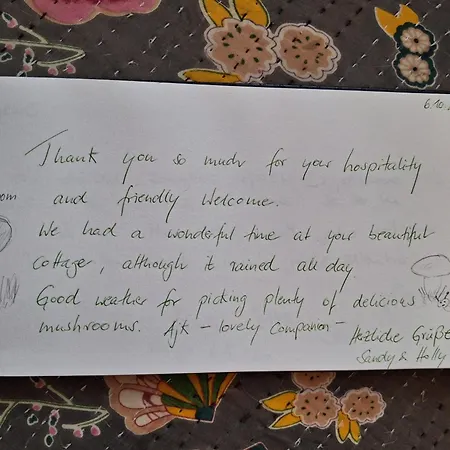 6.10.
Thank you so much for your hospitality
and friendly Welcome.
We had a wonderful time at your beautiful
Cottage, although it rained all day.
Good weather for picking plenty of delicious
mushrooms. Ajk – lovely Companion –
Herzliche Grüße
Sandy & Holly